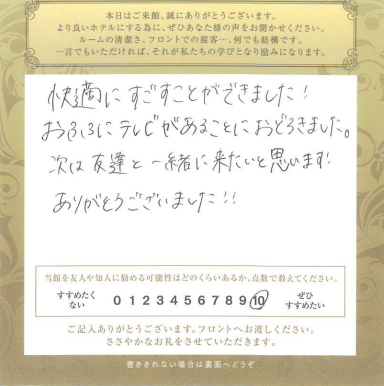 本日はご来館、誠にありがとうございます。
より良いホテルにする為に、ぜひあなた様の声をお聞かせください。
ルームの清潔さ、フロントでの接客…何でも結構です。
一言でもいただければ、それが私たちの学びとなり励みになります。
快適にすごすことができました!
おふろにテレビがあることにおどろきました。
次は友達と一緒に来たいと思います!
ありがとうございました!!
当館を友人や知人に勧める可能性はどのくらいあるか、点数で教えてください。
すすめたくない 0 1 2 3 4 5 6 7 8 9 10 ぜひすすめたい
ご記入ありがとうございます。フロントへお渡しください。
ささやかなお礼をさせていただきます。
書ききれない場合は裏面へどうぞ